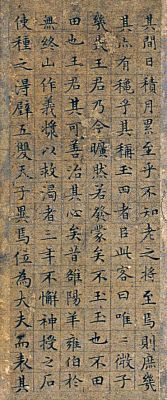 其間日積月累至乎不知老之將至焉則庶幾
其亦有穫乎其稱玉田者此客曰唯唯微子
幾喪王君乃今曠然若發蒙矣不玉玉也不田
田也王君其可善治其心矣昔雒陽羊雍伯於
無終山作義漿以救渴者三年不懈神授之石
使種之得璧五雙天子異焉位為大夫而表其